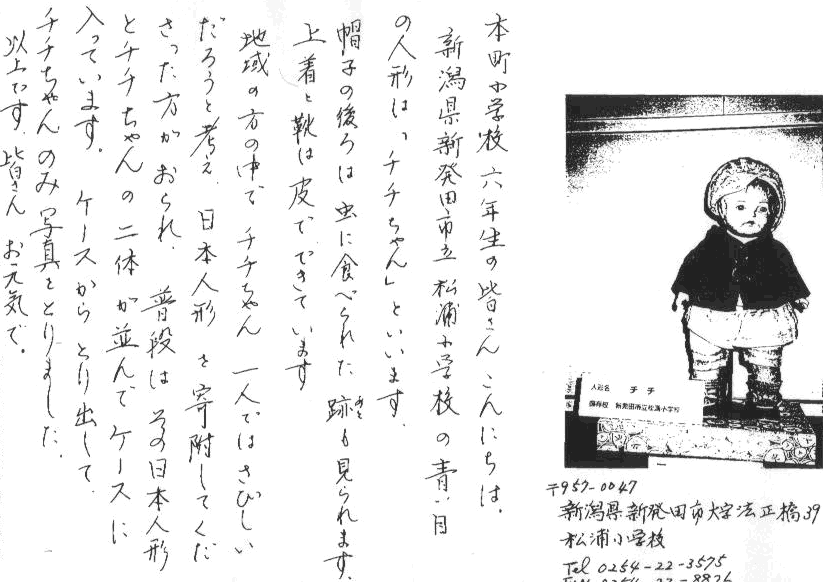 本町小学校 六年生の皆さん こんにちは。
新潟県新発田市立 松浦小学校の青い目
の人形は、「チチちゃん」といいます。
帽子の後ろは 虫に食べられた 跡も見られます。
あと
上着と靴は皮で、できています
地域の方の中で チチちゃん 一人ではさびしい
だろうと考え、日本人形を寄附してくだ
さった方がおられ、普段は その日本人形
とチチちゃんの二体が並んでケースに
入っています。 ケースからとり出して、
チチちゃんのみ写真をとりました。
以上です。皆さん お元気で。
人形名 チチ
保存校 新発田市立松浦小学校
〒957-0047
新潟県新発田市大字法正橋39
松浦小学校
Tel 0254-22-3575